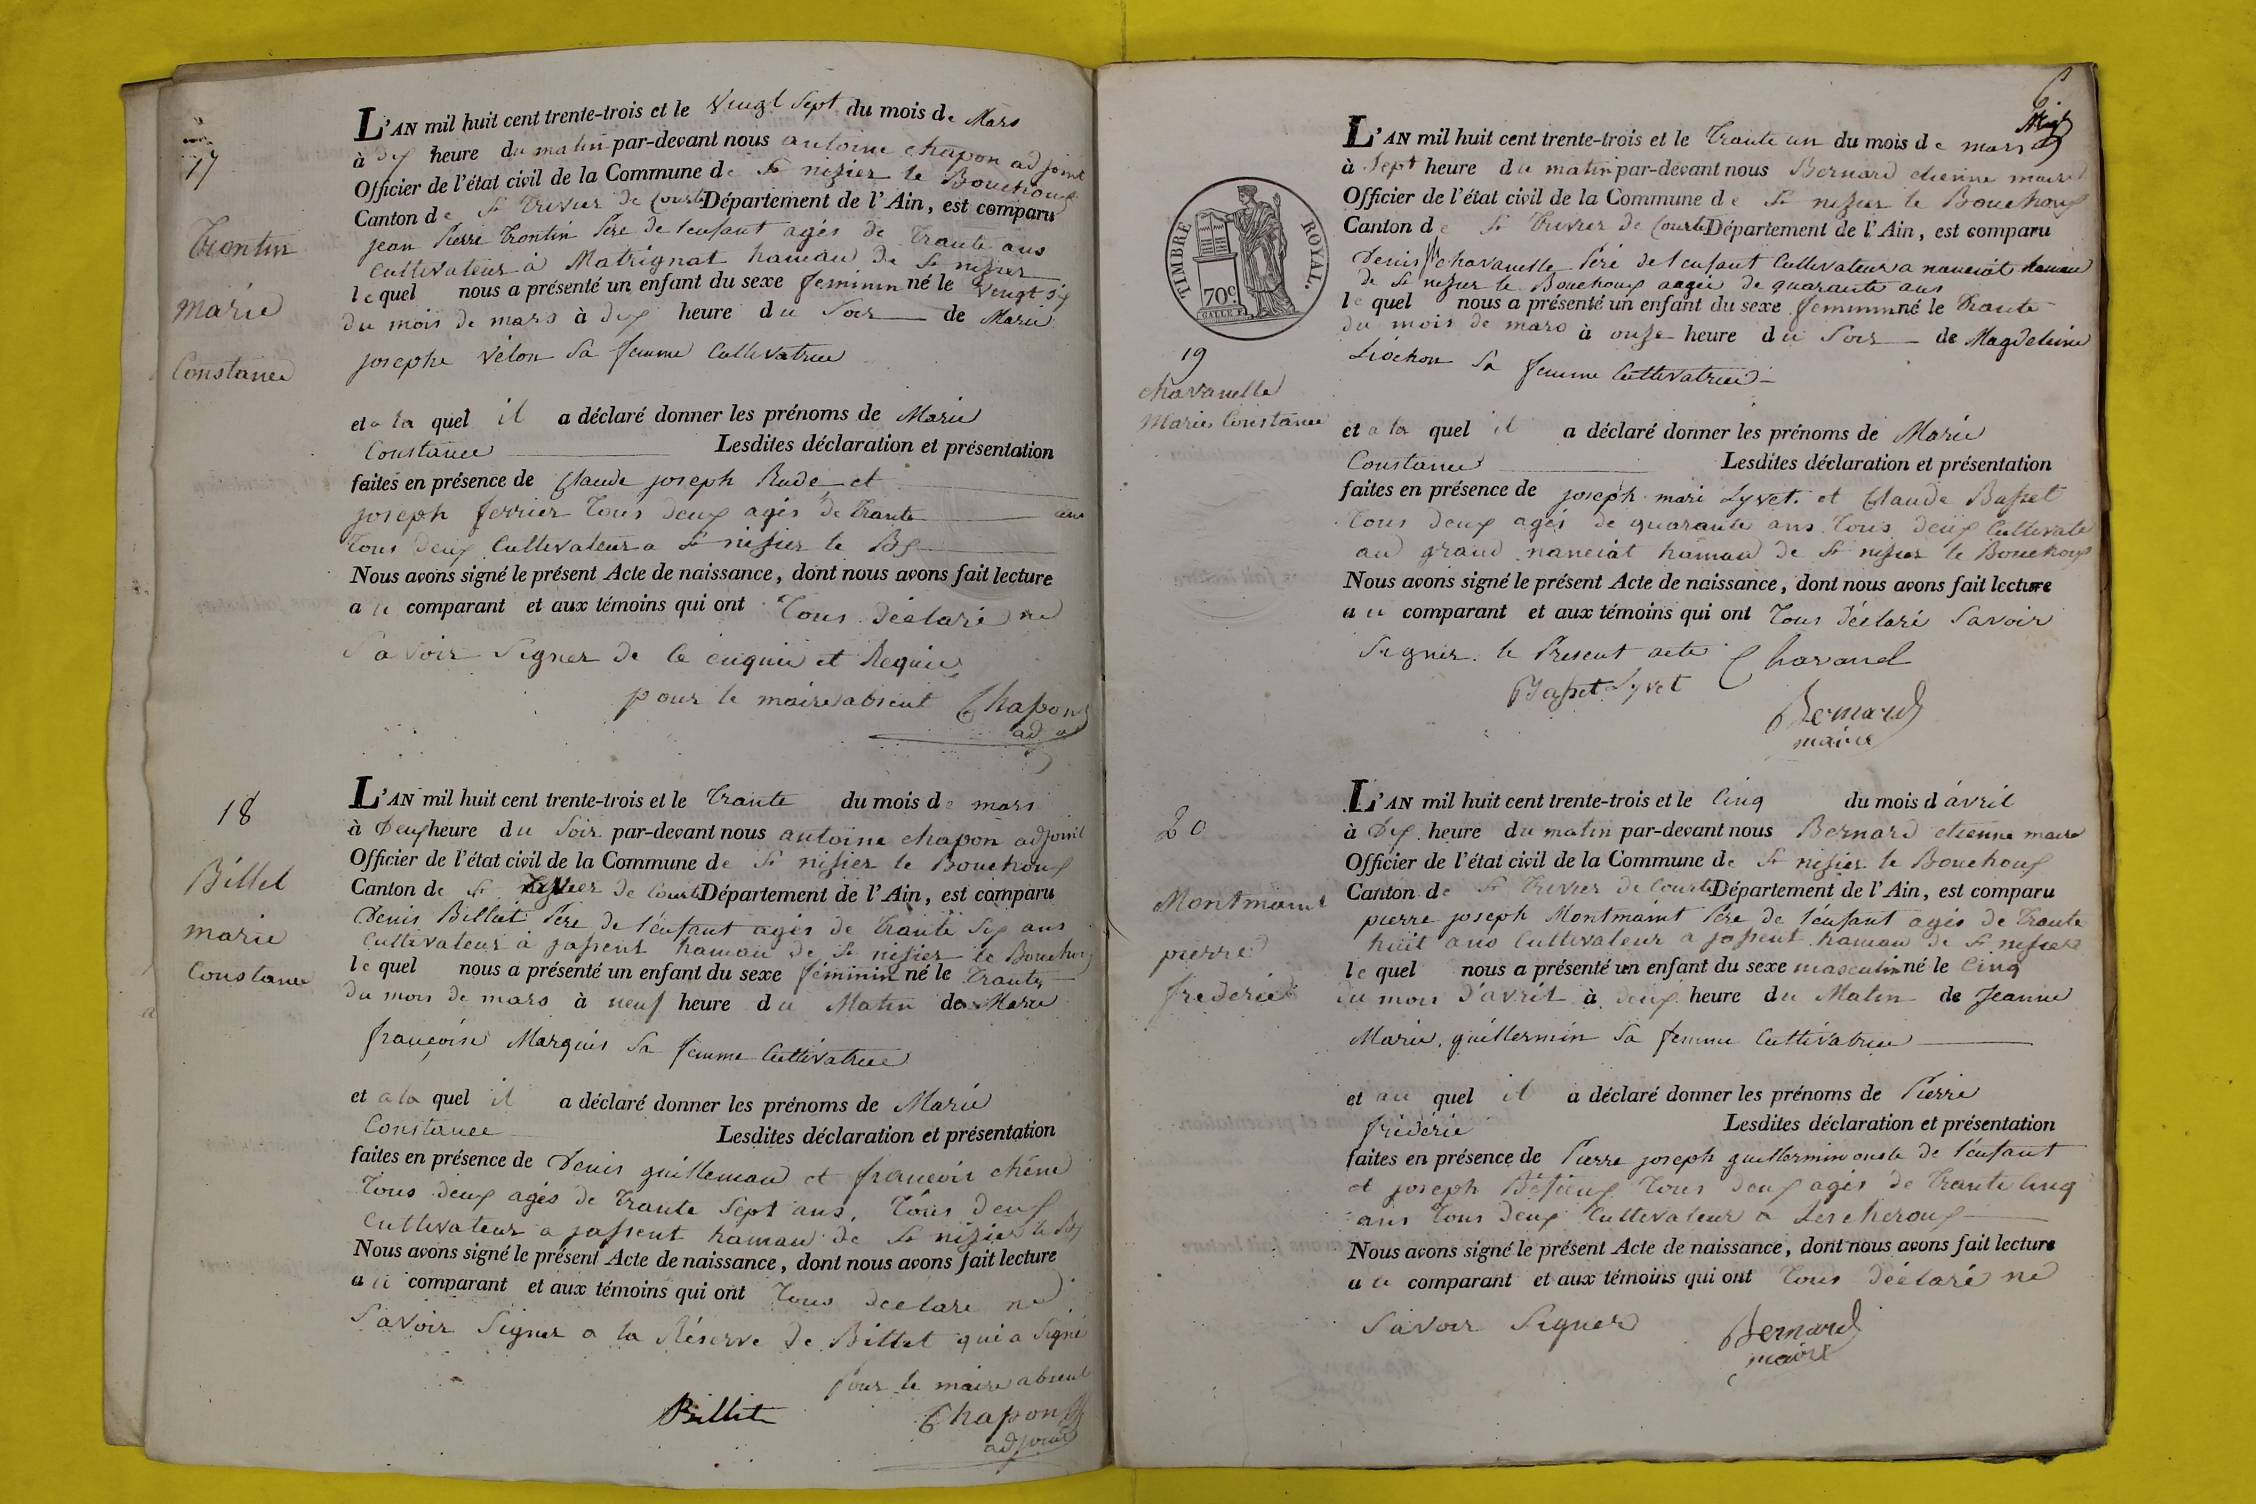 17
Trontin
Marie
Constance
L'AN mil huit cent trente-trois et le vingt sept du mois de Mars
à dix heure du matin par-devant nous antoine chapon adjoint
Officier de l'état civil de la Commune de St nizier le Bouchoux
Canton de St Trivier de Courte Département de l'Ain, est comparu
jean Pierre Trontin Pere de lenfant agés de Trante ans
Cultivateur à Matrignat hameau de St nizier
lequel nous a présenté un enfant du sexe feminin né le vingt six
du mois de mars à dix heure du Soir de Marie
josephe vélon Sa femme Cultivatrice
et a la quel il a déclaré donner les prénoms de Marie
Constance Lesdites déclaration et présentation
faites en présence de Claude joseph Rude et
joseph ferrier Tous deux agés de Trante ans
Tous deux Cultivateur a St nizier le Bx
Nous avons signé le présent Acte de naissance, dont nous avons fait lecture
au comparant et aux témoins qui ont Tous déclaré ne
Savoir Signer de ce enquis et Requis
pour le maire absent Chapon
adj
18
Billet
marie
Constance
L'AN mil huit cent trente-trois et le Trante du mois de mars
à Deux heure du Soir par-devant nous antoine chapon adjoint
Officier de l'état civil de la Commune de St nizier le Bouchoux
Canton de St de Courte Département de l'Ain, est comparu
Denis Billiet Pere de l'enfant agés de Trante Six ans
Cultivateur à jassent hamau de St nizier le Bouchoux
lequel nous a présenté un enfant du sexe féminin né le Trante
du mois de mars à neuf heure du Matin de Marie
françoise Marquis Sa femme Cultivatrice
et a la quel il a déclaré donner les prénoms de Marie
Constance Lesdites déclaration et présentation
faites en présence de Denis guillemau et françois chêne
Tous deux agés de Trante Sept ans. Tous deux
Cultivateur a jassent hamau de St nizier le Bx
Nous avons signé le présent Acte de naissance, dont nous avons fait lecture
au comparant et aux témoins qui ont Tous declare ne
Savoir Signer a la Réserve de Billet qui a Signé
Pour le maire absent
Billit Chapon
adjoint
6
TIMBRE ROYAL.
70c.
19
Chavanelle
Marie Constance
L'AN mil huit cent trente-trois et le Trante un du mois de mars
à Sept heure du matin par-devant nous Bernard etienne maire
Officier de l'état civil de la Commune de St nizier le Bouchoux
Canton de St Trivier de Courte Département de l'Ain, est comparu
Denis Chavanelle Pere de lenfant Cultivateur a nanciat hamau
de St nizier le Bouchoux agée de quarante ans
lequel nous a présenté un enfant du sexe feminin né le Trante
du mois de mars à onze heure du Soir de Magdeleine
Liochon Sa femme Cultivatrice
et a la quel il a déclaré donner les prénoms de Marie
Constance Lesdites déclaration et présentation
faites en présence de joseph mari Lyvet. et Claude Basset
Tous deux agés de quarante ans Tous deux Cultivate
au grand nanciat hamau de St nizier le Bouchoux
Nous avons signé le présent Acte de naissance, dont nous avons fait lecture
au comparant et aux témoins qui ont Tous Déclaré Savoir
Signer. le Present acte Chavanel
Basset Lyvet
Bernard
maire
20
Montmaint
pierre
frederic
L'AN mil huit cent trente-trois et le Cinq du mois d'avril
à Dix heure du matin par-devant nous Bernard etienne maire
Officier de l'état civil de la Commune de St nizier le Bouchoux
Canton de St Trivier de Courte Département de l'Ain, est comparu
pierre joseph Montmaint Pere de l'enfant agés de Trante
huit ans Cultivateur a jassent hamau de St nizier
lequel nous a présenté un enfant du sexe masculin né le Cinq
du mois d'avril à deux heure du Matin de Jeanne
Marie, guillermin Sa femme Cultivatrice
et au quel il a déclaré donner les prénoms de Pierre
frédéric Lesdites déclaration et présentation
faites en présence de Pierre joseph guillermin oncle de l'enfant
et joseph Tous deux agés de Trante Cinq
ans Tous deux Cultivateur a Lescheroux
Nous avons signé le présent Acte de naissance, dont nous avons fait lecture
au comparant et aux témoins qui ont Tous déclaré ne
Savoir Signer
Bernard
maire